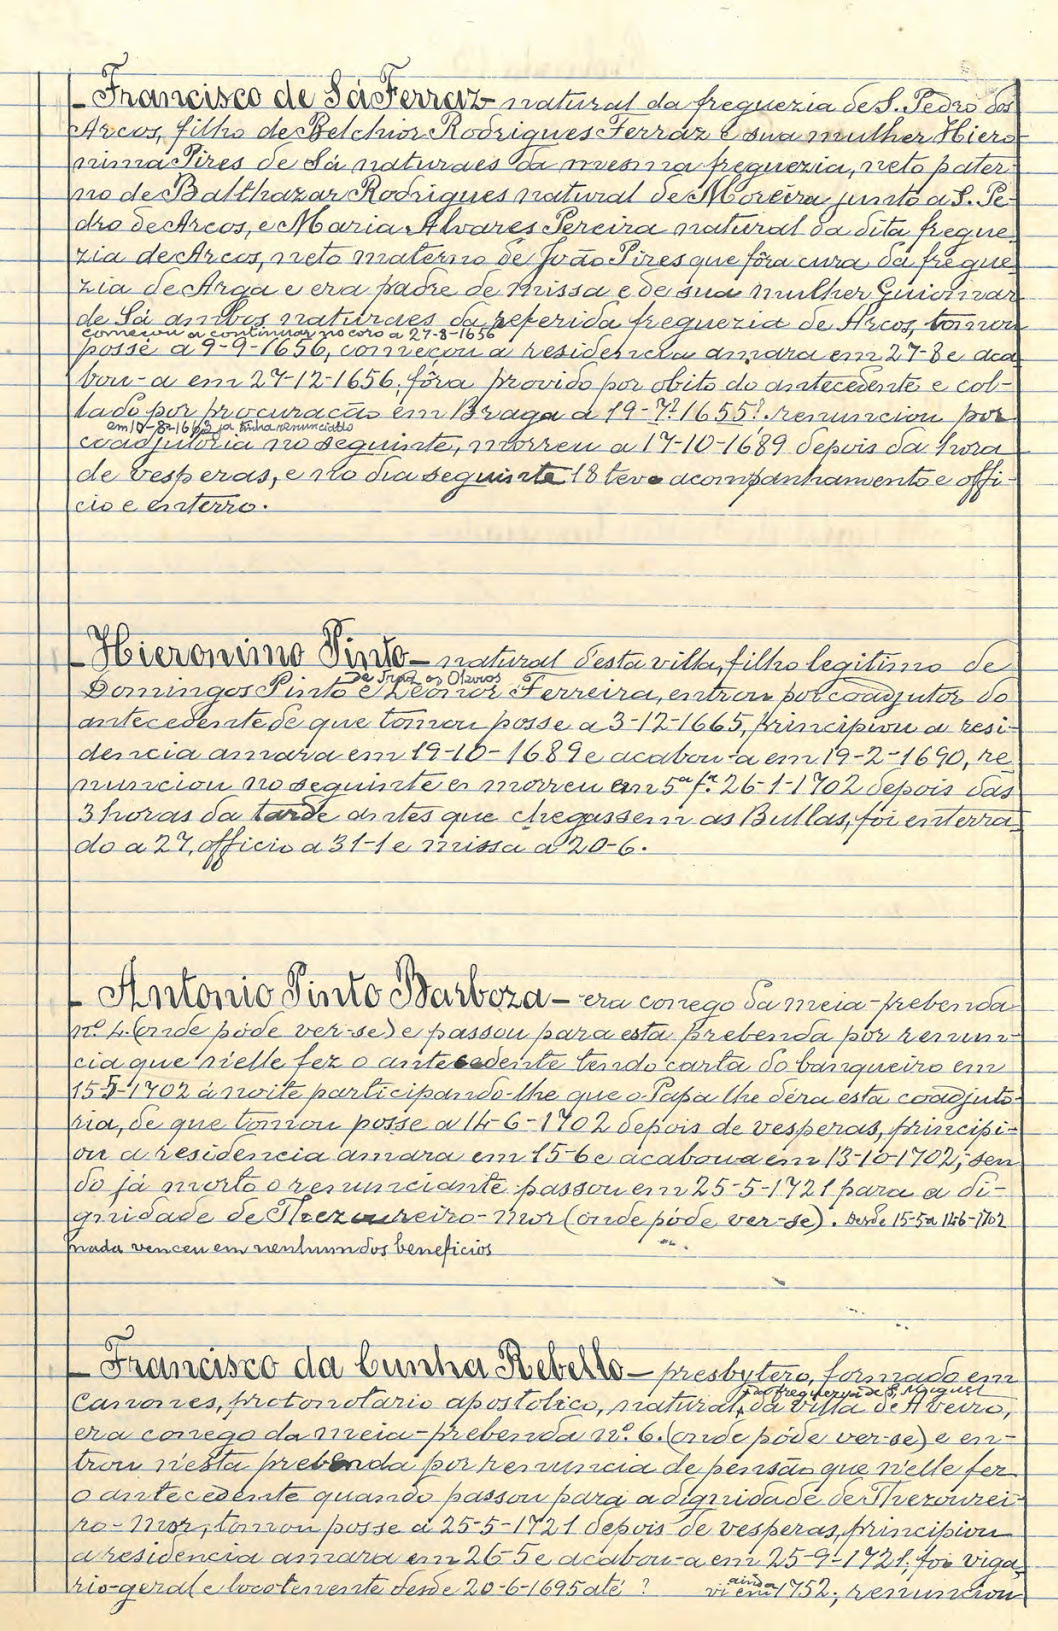 - Francisco de Sá Ferraz - natural da freguezia de S. Pedro dos
Arcos, filho de Belchior Rodrigues Ferraz e sua mulher Hiero-
nima Pires de Sá naturaes da mesma freguezia, neto pater-
no de Balthazar Rodrigues natural de Moreira junto a S. Pe-
dro de Arcos, e Maria Alvares Pereira natural da dita fregue-
zia de Arcos, neto materno de João Pires que fôra cura da fregue-
zia de Arga e era padre de missa e de sua mulher Guiomar
de Sá ambos naturaes da referida freguezia de Arcos, tomou
começou a continuar no coro a 27-8-1656
posse a 9-9-1656, começou a residencia amara em 27-8 e aca-
bou-a em 27-12-1656; fôra provido por obito do antecedente e col-
lado por procuração em Braga a 19-7?-1655?. renunciou por
em 10-8-1663 já tinha renunciado
coadjutoria no seguinte, morreu a 17-10-1689 depois da hora
de vesperas, e no dia seguinte 18 teve acompanhamento e offi-
cio e enterro.
- Hieronimo Pinto - natural desta villa, filho legitimo de
Domingos Pinto e Leonor Ferreira, entrou por coadjutor do
antecedente de que tomou posse a 3-12-1665, principiou a resi-
dencia amara em 19-10-1689 e acabou-a em 19-2-1690, re-
nunciou no seguinte e morreu em 5ª fª. 26-1-1702 depois das
3 horas da tarde antes que chegassem as Bullas, foi enterra-
do a 27, officio a 31-1 e missa a 20-6.
- Antonio Pinto Barboza - era conego da meia-prebenda
nº. 4. (onde póde ver-se) e passou para esta prebenda por renun-
cia que n'elle fez o antecedente tendo carta do banqueiro em
15-5-1702 á noite participando-lhe que o Papa lhe déra esta coadjuto-
ria, de que tomou posse a 14-6-1702 depois de vesperas, principi-
ou a residencia amara em 15-6 e acabou-a em 13-10-1702; sen-
do já morto o renunciante passou em 25-5-1721 para a di-
gnidade de Thezoureiro-Mor (onde póde ver-se). Desde 15-5 a 14-6-1702
nada venceu em nenhum dos beneficios
- Francisco da Cunha Rebello - presbytero, formado em
da freguezia de S. Miguel
Canones, protonotario apostolico, natural, da villa de Aveiro,
era conego da meia-prebenda nº. 6. (onde póde ver-se) e en-
trou n'esta prebenda por renuncia de pensão que n'elle fez
o antecedente quando passou para a dignidade de Thezourei-
ro-Mor, tomou posse a 25-5-1721 depois de vesperas, principiou
a residencia amara em 26-5 e acabou-a em 25-9-1721; foi viga-
rio-geral e locotenente desde 20-6-1695 até ? vi ainda em 1752; renunciou